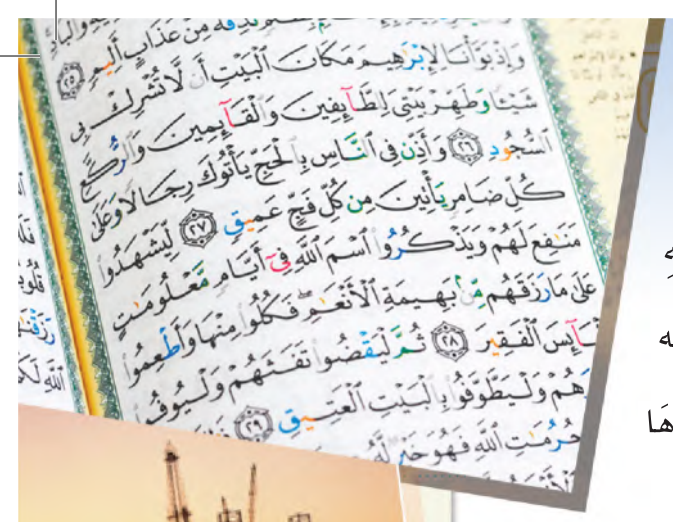 نُذِقْهُ مِنْ عَذَابٍ أَلِيمٍ ٢٥
وَإِذْ بَوَّأْنَا لِإِبْرَٰهِيمَ مَكَانَ ٱلْبَيْتِ أَن لَّا تُشْرِكْ بِى
شَيْـًٔا وَطَهِّرْ بَيْتِىَ لِلطَّآئِفِينَ وَٱلْقَآئِمِينَ وَٱلرُّكَّعِ
ٱلسُّجُودِ ٢٦ وَأَذِّن فِى ٱلنَّاسِ بِٱلْحَجِّ يَأْتُوكَ رِجَالًا وَعَلَىٰ
كُلِّ ضَامِرٍ يَأْتِينَ مِن كُلِّ فَجٍّ عَمِيقٍ ٢٧ لِّيَشْهَدُوا۟
مَنَٰفِعَ لَهُمْ وَيَذْكُرُوا۟ ٱسْمَ ٱللَّهِ فِىٓ أَيَّامٍ مَّعْلُومَٰتٍ
عَلَىٰ مَا رَزَقَهُم مِّنۢ بَهِيمَةِ ٱلْأَنْعَٰمِ فَكُلُوا۟ مِنْهَا وَأَطْعِمُوا۟
ٱلْفَقِيرَ ٢٨ ثُمَّ لْيَقْضُوا۟ تَفَثَهُمْ وَلْيُوفُوا۟
هُمْ وَلْيَطَّوَّفُوا۟ بِٱلْبَيْتِ ٱلْعَتِيقِ ٢٩
حُرُمَٰتِ ٱللَّهِ فَهُوَ خَيْرٌ لَّهُۥ